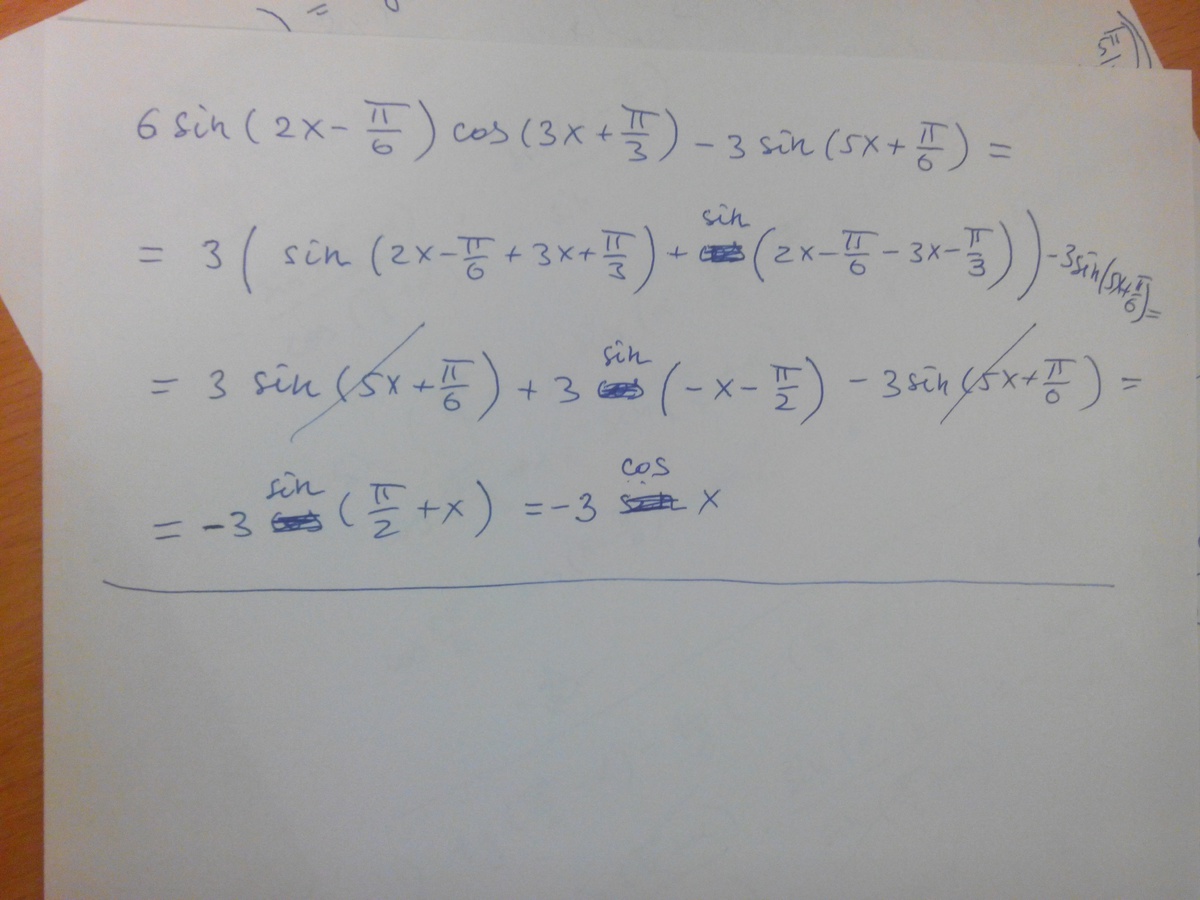 ) =
5π
6 sin(2x - π/6) cos(3x + π/3) - 3 sin(5x + π/6) =
= 3( sin(2x - π/6 + 3x + π/3) + sin(2x - π/6 - 3x - π/3)) - 3sin(5x + π/6) =
= 3 sin(5x + π/6) + 3 sin(-x - π/2) - 3sin(5x + π/6) =
= -3 sin(π/2 + x) = -3 cos x